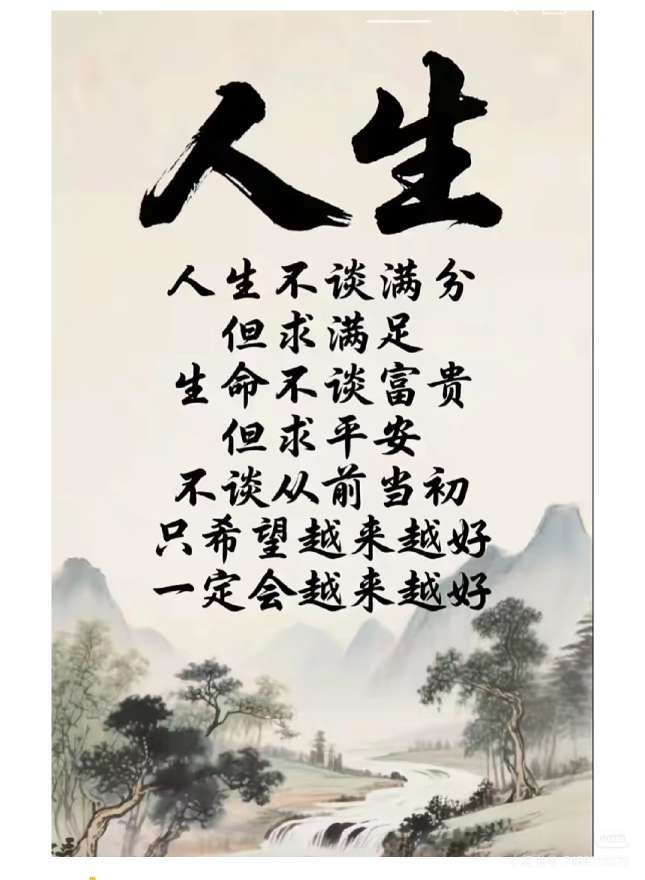 人生
人生不谈满分
但求满足
生命不谈富贵
但求平安
不谈从前当初
只希望越来越好
一定会越来越好